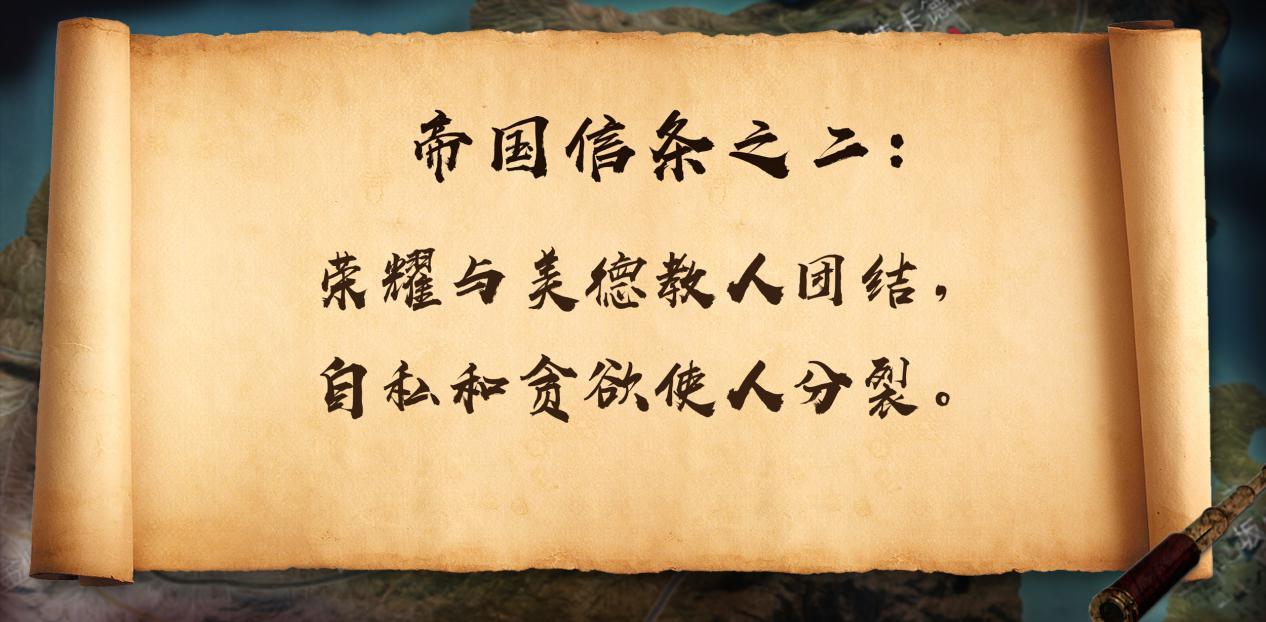 帝国信条之二：
荣耀与美德教人团结，
自私和贪欲使人分裂。